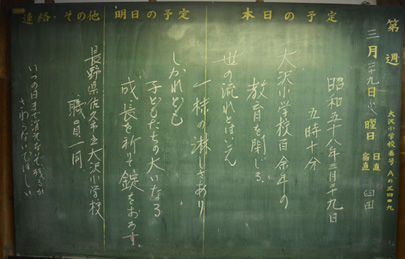 第 週
大沢小学校
三月二十九日(火)曜日
日直
宿直
本日の予定
昭和五十八年三月二十九日
五時十分
大沢小学校百余年の
教育を閉じる
世の流れとはいえ
一抹の淋しさあり
明日の予定
しかれども
子どもたちの大いなる
成長を祈って錠をおろす。
連絡・その他
長野県佐久市立大沢小学校
職員一同
いつの日まで消えないで残るか
さわらないでほしい